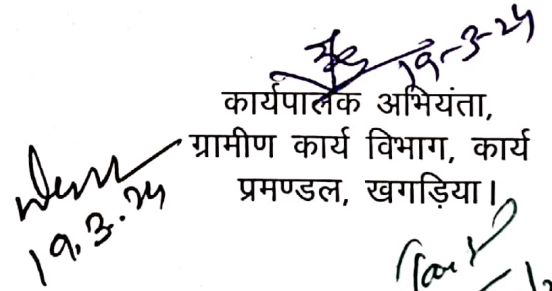 19-3-24
कार्यपालक अभियंता,
ग्रामीण कार्य विभाग, कार्य
प्रमण्डल, खगड़िया।
19.3.24